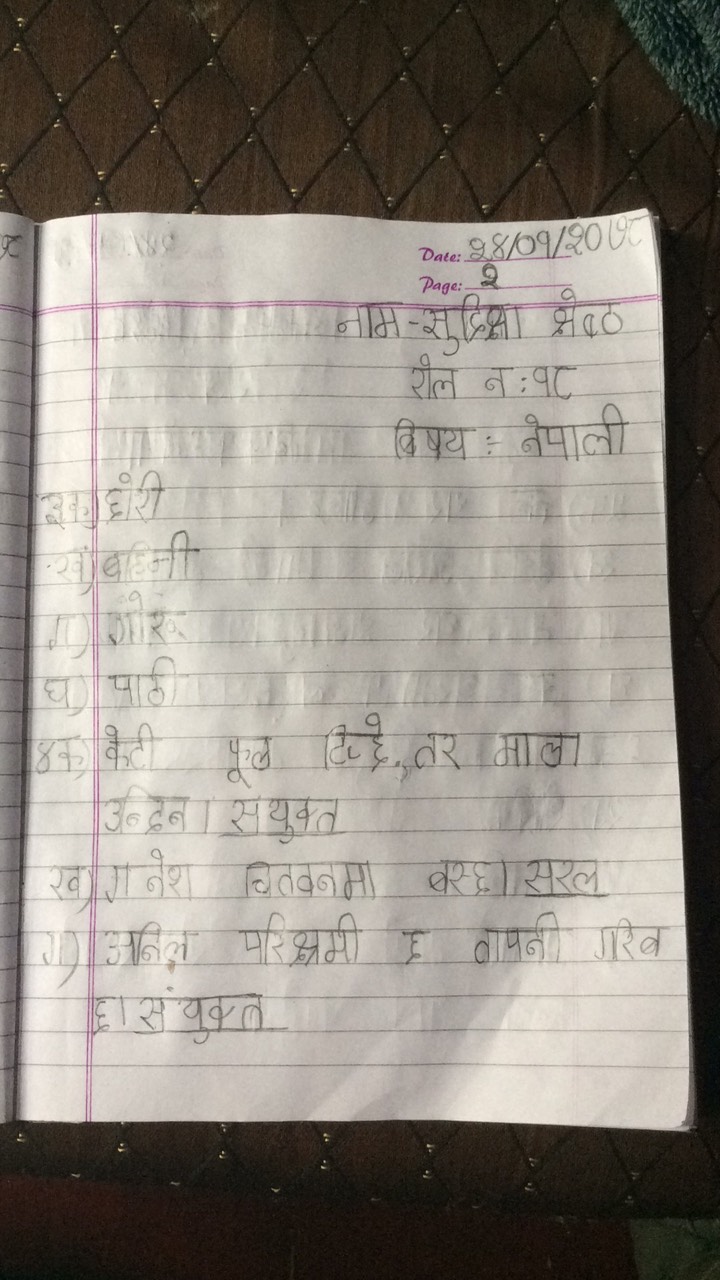 Date: २४/०१/२०७८
Page: २
नाम-सुदिक्षा श्रेष्ठ
रोल न:१८
बिषय :- नेपाली
३क) छोरी
ख) बहिनी
ग) गोरु
घ) पाठी
४क) केटी फूल टिप्छे, तर माला
उन्दिन। संयुक्त
ख) ग नेश चितवनमा बस्छ। सरल
ग) अनिल परिश्रमी छ तापनी गरिब
छ। संयुक्त